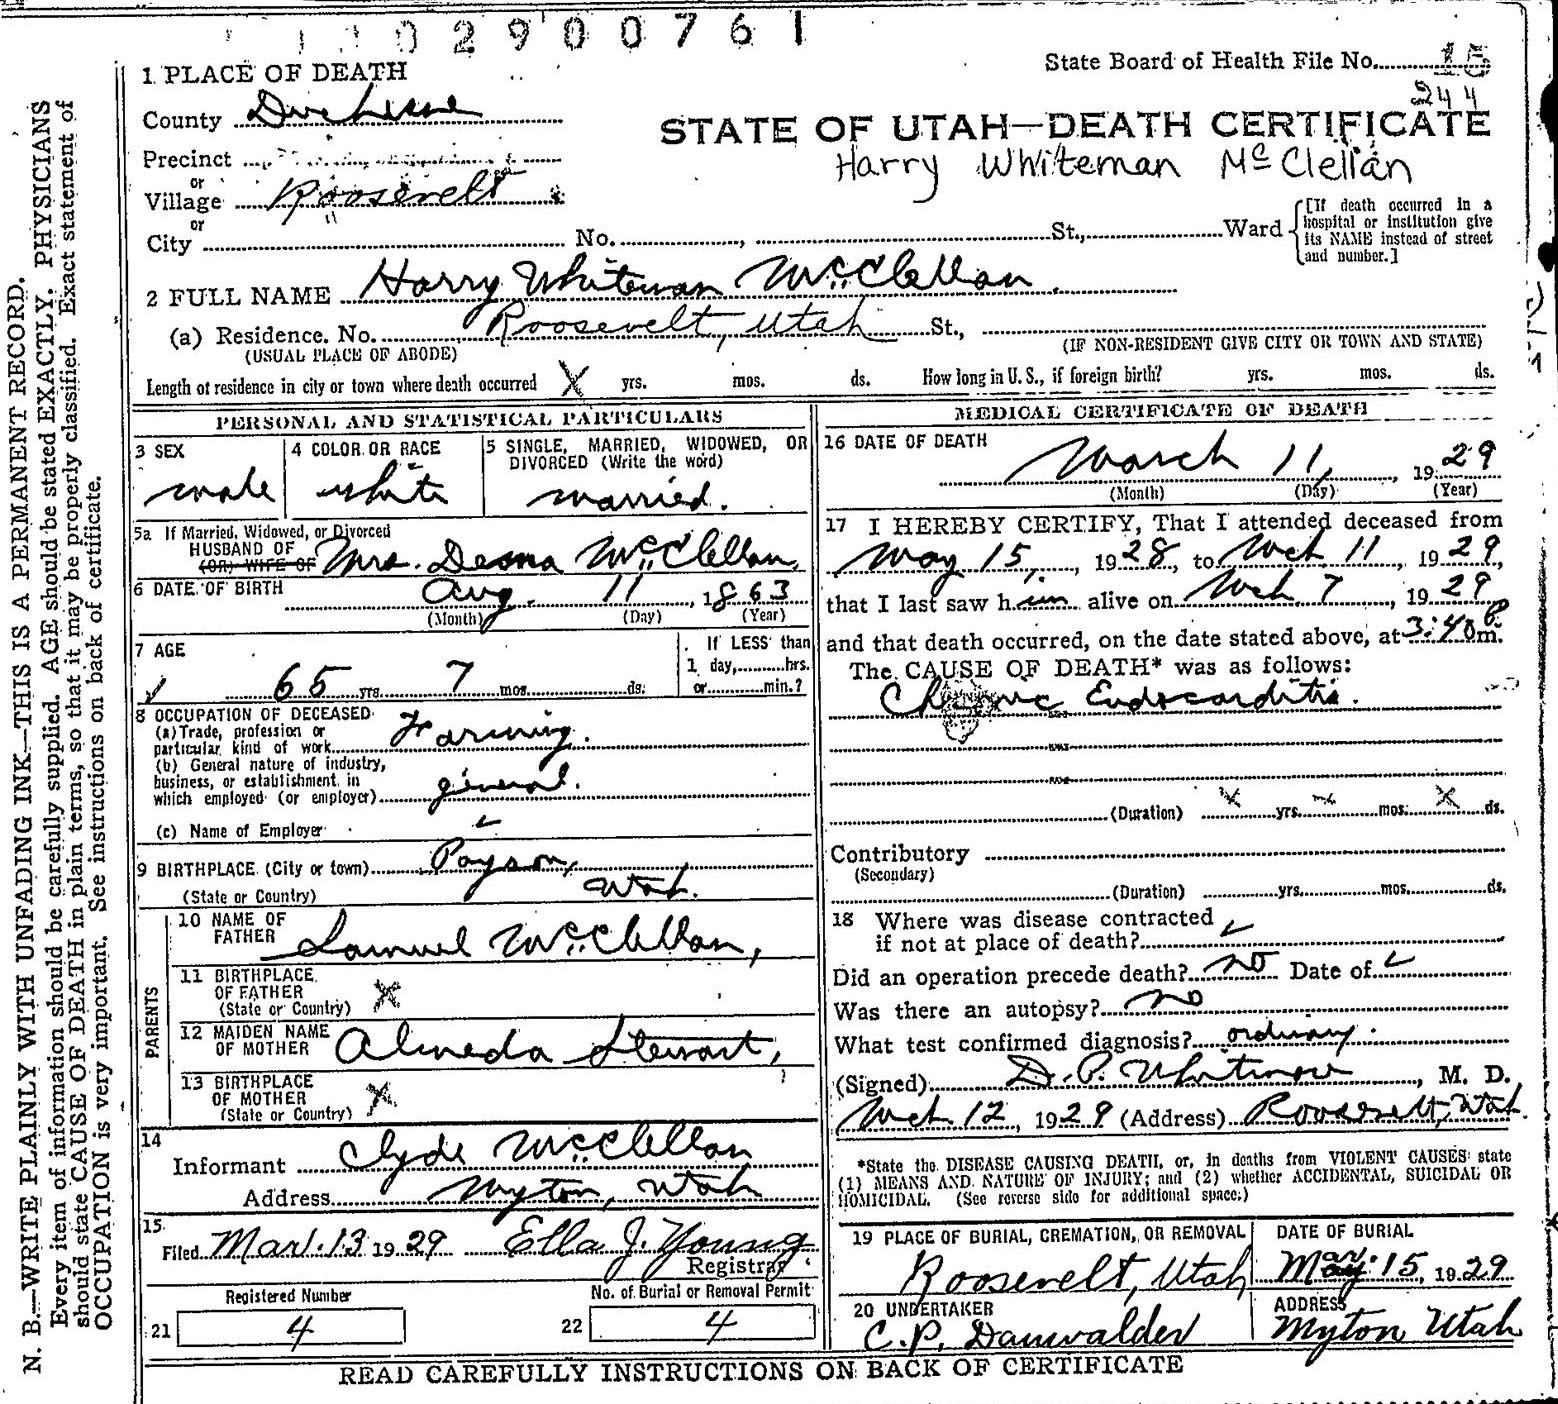 0 2 9 0 0 7 6 1
State Board of Health File No. 15
244
1 PLACE OF DEATH
County Duchesne
STATE OF UTAH—DEATH CERTIFICATE
Precinct
Harry Whiteman McClellan
or
Village Roosevelt
or
City No. St., Ward
[If death occurred in a hospital or institution give its NAME instead of street and number.]
2 FULL NAME Harry Whiteman McClellan
(a) Residence. No. Roosevelt, Utah St.,
(USUAL PLACE OF ABODE) (IF NON-RESIDENT GIVE CITY OR TOWN AND STATE)
Length of residence in city or town where death occurred X yrs. mos. ds. How long in U. S., if foreign birth? yrs. mos. ds.
PERSONAL AND STATISTICAL PARTICULARS
3 SEX
male
4 COLOR OR RACE
white
5 SINGLE, MARRIED, WIDOWED, OR DIVORCED (Write the word)
married.
5a If Married, Widowed, or Divorced
HUSBAND OF
(OR) WIFE OF Mrs. McClellan,
6 DATE OF BIRTH Aug. 11, 1863
(Month) (Day) (Year)
7 AGE
65 yrs. 7 mos. ds.
If LESS than
1 day, hrs.
or min.?
8 OCCUPATION OF DECEASED
(a) Trade, profession or
particular kind of work Farming.
(b) General nature of industry,
business, or establishment in
which employed (or employer) general.
(c) Name of Employer
9 BIRTHPLACE (City or town) Payson,
(State or Country) Utah.
PARENTS
10 NAME OF
FATHER Samuel McClellan,
11 BIRTHPLACE
OF FATHER
(State or Country) X
12 MAIDEN NAME
OF MOTHER Almeda Stewart,
13 BIRTHPLACE
OF MOTHER
(State or Country) X
14
Informant Clyde McClellan
Address Myton, Utah
15
Filed Mar. 13 1929 Ella J. Young
Registrar
Registered Number
21 4
No. of Burial or Removal Permit
22 4
MEDICAL CERTIFICATE OF DEATH
16 DATE OF DEATH
March 11, 1929
(Month) (Day) (Year)
17 I HEREBY CERTIFY, That I attended deceased from
May 15, 1928, to Mch. 11, 1929,
that I last saw him alive on Mch. 7, 1929
and that death occurred, on the date stated above, at 3:40 P m.
The CAUSE OF DEATH* was as follows:
Chronic Endocarditis.
(Duration) X yrs. X mos. X ds.
Contributory
(Secondary)
(Duration) yrs. mos. ds.
18 Where was disease contracted
if not at place of death?
Did an operation precede death? no Date of
Was there an autopsy? no
What test confirmed diagnosis? ordinary.
(Signed) D. P. Whitmore, M. D.
Mch 12, 1929 (Address) Roosevelt, Utah.
*State the DISEASE CAUSING DEATH, or, in deaths from VIOLENT CAUSES state
(1) MEANS AND NATURE OF INJURY; and (2) whether ACCIDENTAL, SUICIDAL OR
HOMICIDAL. (See reverse side for additional space.)
19 PLACE OF BURIAL, CREMATION, OR REMOVAL
Roosevelt, Utah
DATE OF BURIAL
Mar. 15, 1929
20 UNDERTAKER
C. P. Danwalder
ADDRESS
Myton Utah
READ CAREFULLY INSTRUCTIONS ON BACK OF CERTIFICATE
N. B.—WRITE PLAINLY WITH UNFADING INK—THIS IS A PERMANENT RECORD.
Every item of information should be carefully supplied. AGE should be stated EXACTLY. PHYSICIANS
should state CAUSE OF DEATH in plain terms, so that it may be properly classified. Exact statement of
OCCUPATION is very important. See instructions on back of certificate.